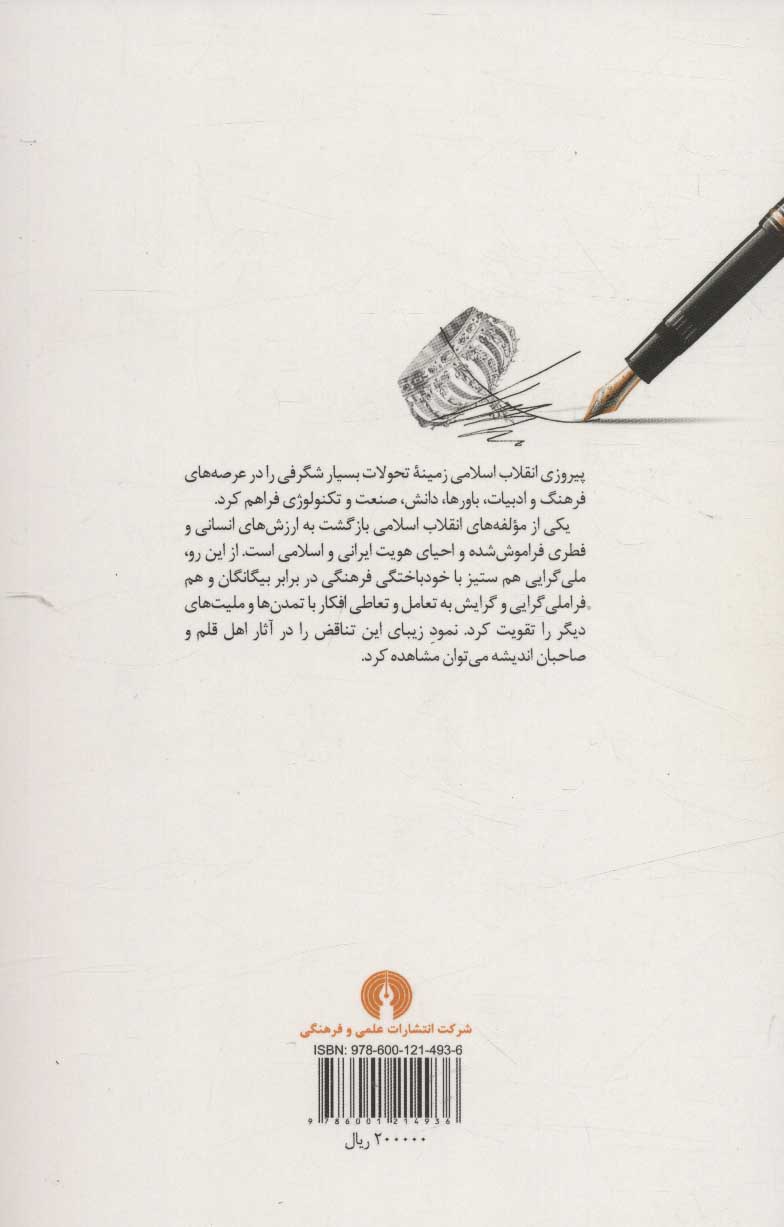 پیروزی انقلاب اسلامی زمینهٔ تحولات بسیار شگرفی را در عرصه‌های
فرهنگ و ادبیات، باورها، دانش، صنعت و تکنولوژی فراهم کرد.
یکی از مؤلفه‌های انقلاب اسلامی بازگشت به ارزش‌های انسانی و
فطری فراموش‌شده و احیای هویت ایرانی و اسلامی است. از این رو،
ملی‌گرایی هم ستیز با خودباختگی فرهنگی در برابر بیگانگان و هم
فراملی‌گرایی و گرایش به تعامل و تعاطی افکار با تمدن‌ها و ملیت‌های
دیگر را تقویت کرد. نمودِ زیبای این تناقض را در آثار اهل قلم و
صاحبان اندیشه می‌توان مشاهده کرد.
شرکت انتشارات علمی و فرهنگی
ISBN: 978-600-121-493-6
9 786001 214936
۲۰۰۰۰۰ ریال